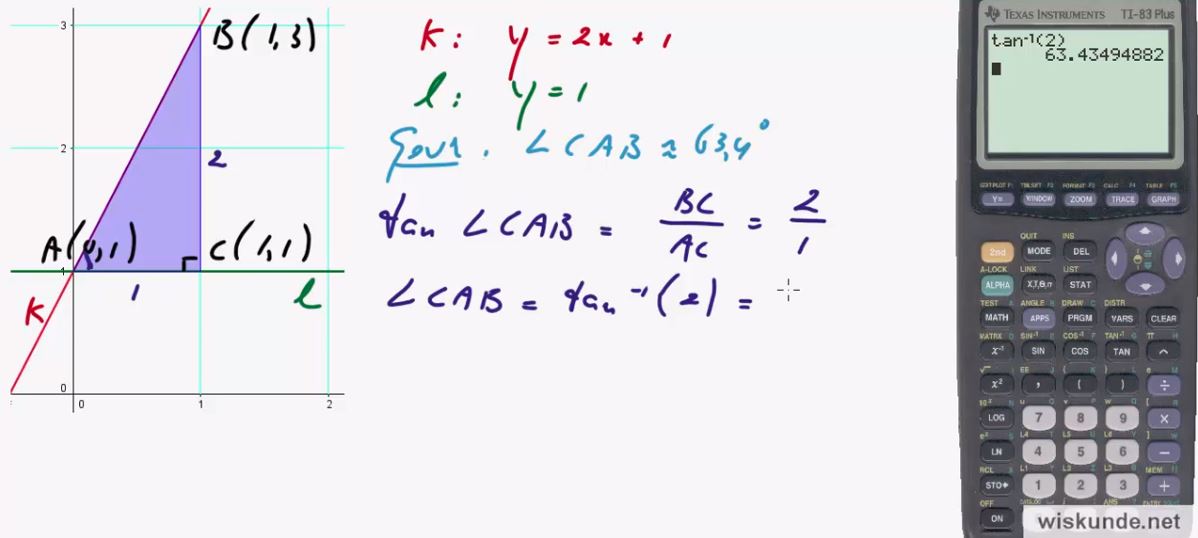 3
B(1,3)
2
2
A(0,1)
C(1,1)
1
1
k
l
0
0
1
2
k: y = 2x + 1
l: y = 1
Gevr. ∠CAB ≈ 63,4°
tan ∠CAB = BC/AC = 2/1
∠CAB = tan⁻¹(2) =
TEXAS INSTRUMENTS TI-83 Plus
tan⁻¹(2)
63.43494882
STAT PLOT F1 TBLSET F2 FORMAT F3 CALC F4 TABLE F5
Y= WINDOW ZOOM TRACE GRAPH
QUIT INS
2nd MODE DEL
A-LOCK LINK LIST
ALPHA X,T,Θ,n STAT
TEST A ANGLE B DRAW C DISTR
MATH APPS PRGM VARS CLEAR
MATRX D SIN⁻¹ E COS⁻¹ F TAN⁻¹ G π H
x⁻¹ SIN COS TAN ^
x² , ( ) ÷
LOG 7 8 9 ×
LN 4 5 6 −
RCL
STO▸ 1 2 3 +
OFF
ON
wiskunde.net